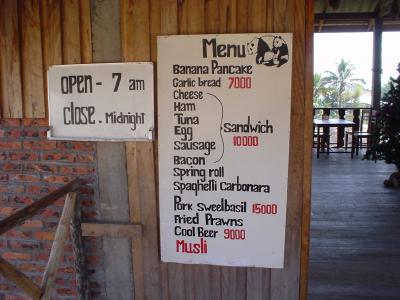 open - 7 am
close . Midnight
Menu
Banana Pancake
Garlic bread 7000
Cheese
Ham
Tuna
Egg
Sandwich
10000
Sausage
Bacon
Spring roll
Spaghetti Carbonara
Pork Sweelbasil 15000
Fried Prawns
Cool Beer 9000
Musli